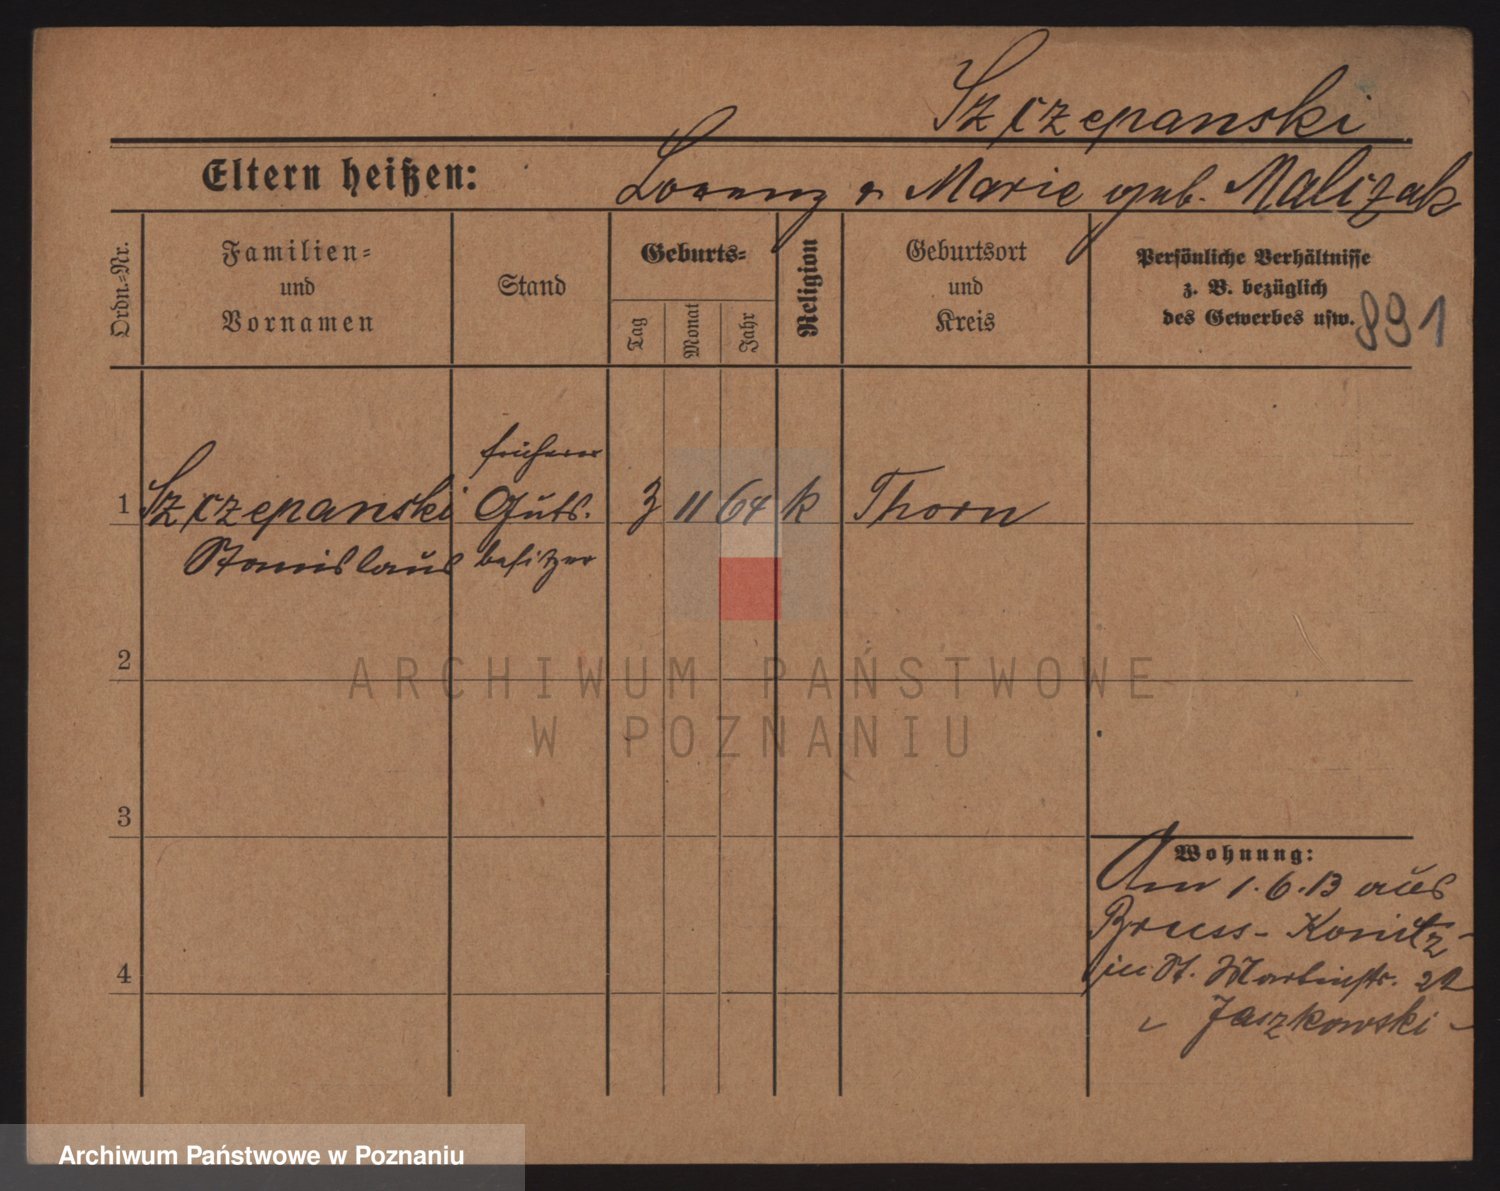 Szczepanski
Eltern heißen: Lorenz u Marie geb. Malizak
Ordn.-Nr.
Familien-
und
Vornamen
Stand
Geburts-
Tag
Monat
Jahr
Religion
Geburtsort
und
Kreis
Persönliche Verhältnisse
z. B. bezüglich
des Gewerbes usw.
891
früherer
1 Szczepanski Guts. 3 11 64 k Thorn
Stanislaus besitzer
2
ARCHIWUM PAŃSTWOWE
W POZNANIU
3
Wohnung:
Am 1.6.13 aus
Bruss - Konitz -
in St. Martinstr. 22
Jaszkowski -
4
Archiwum Państwowe w Poznaniu